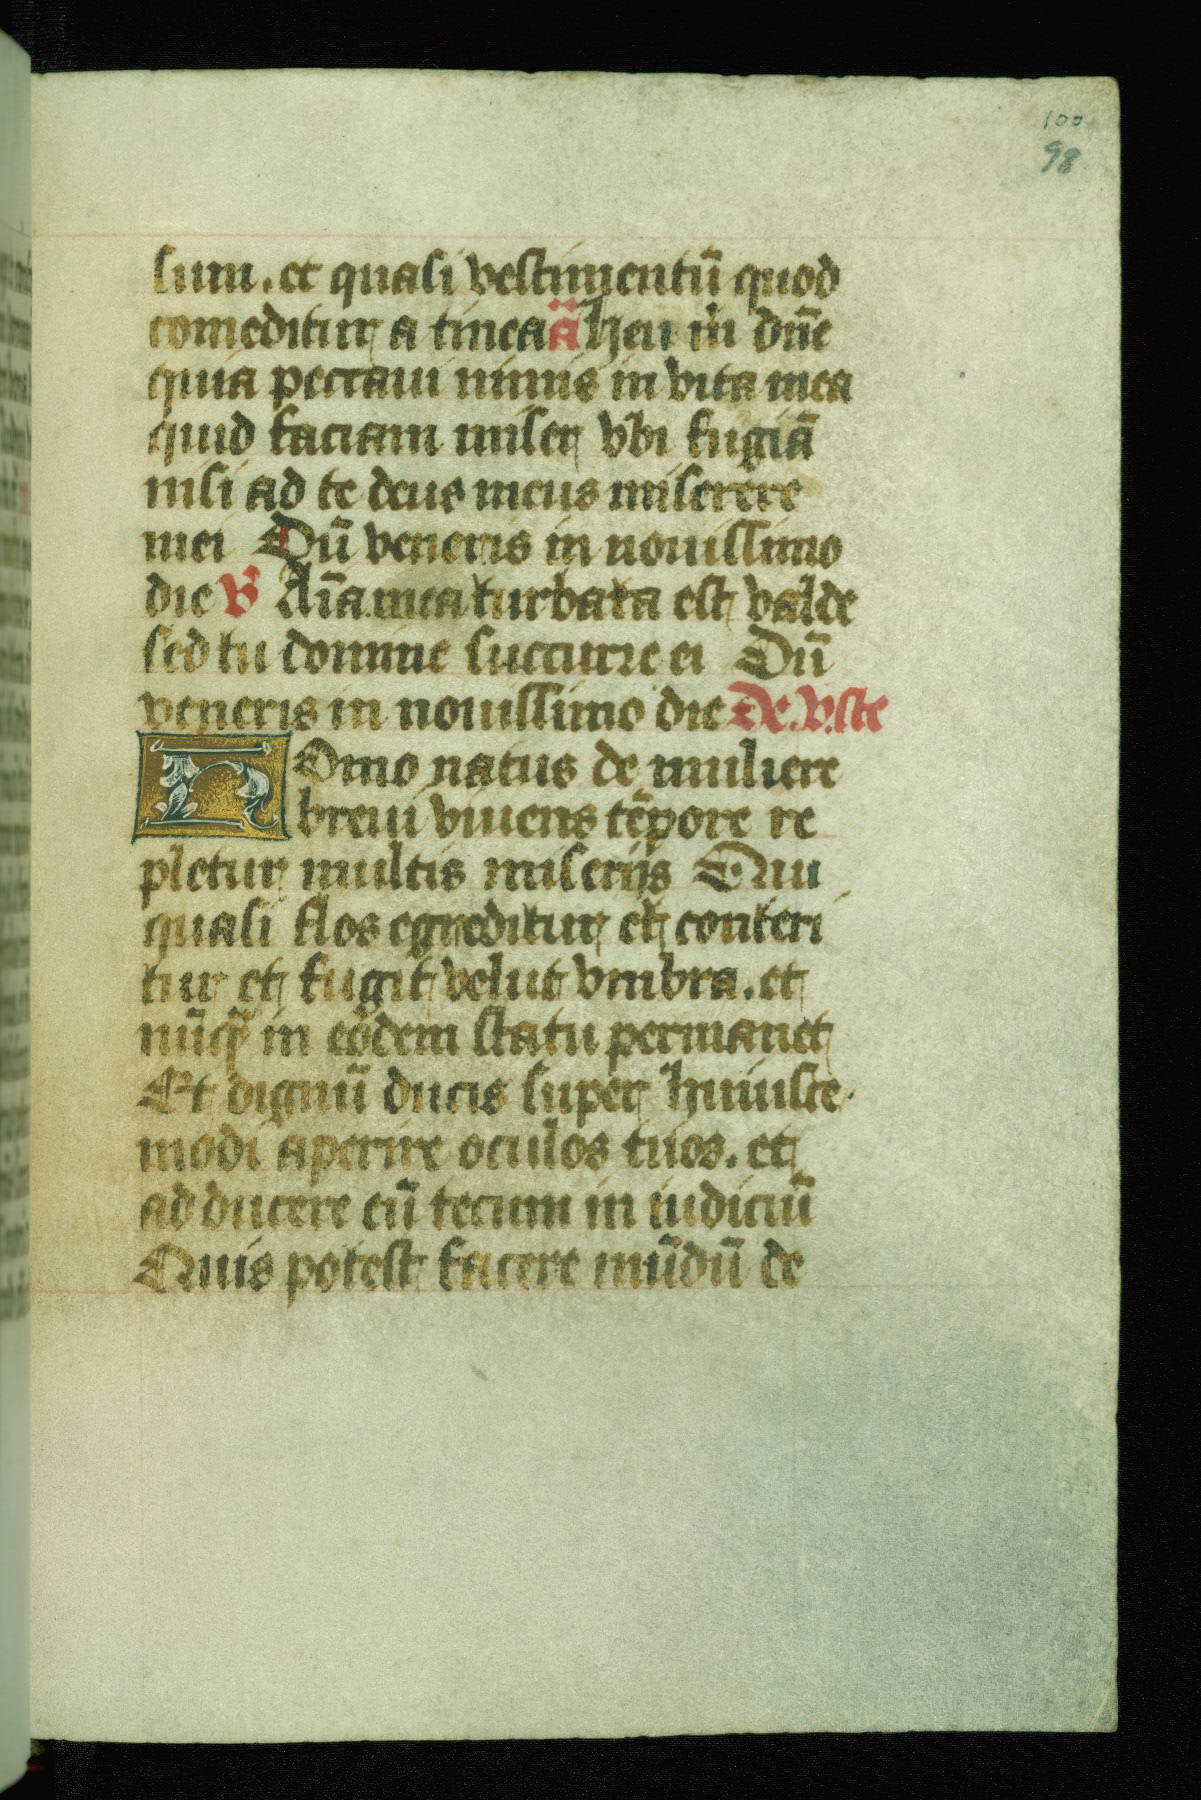 100
98
sum. et quasi vestimentū quod
comeditur a tinea ã heu m dn̄e
quia peccaui nimis in vita mea
quid faciam miser vbi fugiā
nisi ad te deus meus miserere
mei Dū veneris in nouissimo
die V Aīa mea turbata est valde
sed tu domine succurre ei Dū
veneris in nouissimo die
Homo natus de muliere
breui viuens tēpore re
pletur multis miserijs Qui
quasi flos egreditur et conteri
tur et fugit velut vmbra. et
nūqꝫ in eodem statu permanet
Et dignū ducis super huiusce
modi aperire oculos tuos. et
adducere eū tecum in iudiciū
Quis potest facere mūdū de